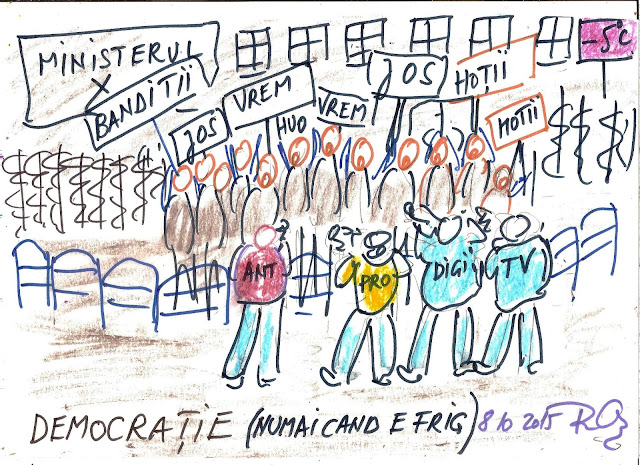 MINISTERUL
X
BANDITII
JOS
VREM
HUO
VREM
JOS
HOȚII
HOTII
-5°C
ANT
PRO
DIGI
TV
DEMOCRAȚIE (NUMAI CAND E FRIG) 8 10 2015